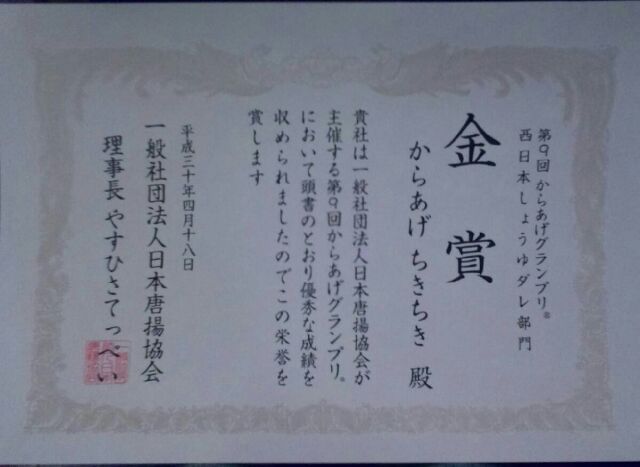 第9回 からあげグランプリ®
西日本しょうゆダレ部門
金賞
からあげ ちきちき 殿
貴社は一般社団法人日本唐揚協会が
主催する第9回からあげグランプリ®
において頭書のとおり優秀な成績を
収められましたのでこの栄誉を
賞します
平成三十年四月十八日
一般社団法人日本唐揚協会
理事長 やすひさてっぺい